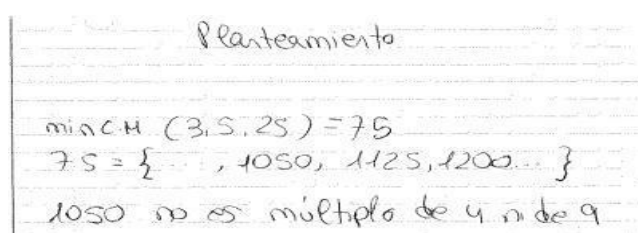 Planteamiento
min C.M (3,5,25) = 75
75 = { ... , 1050, 1125, 1200... }
1050 no es múltiplo de 4 ni de 9